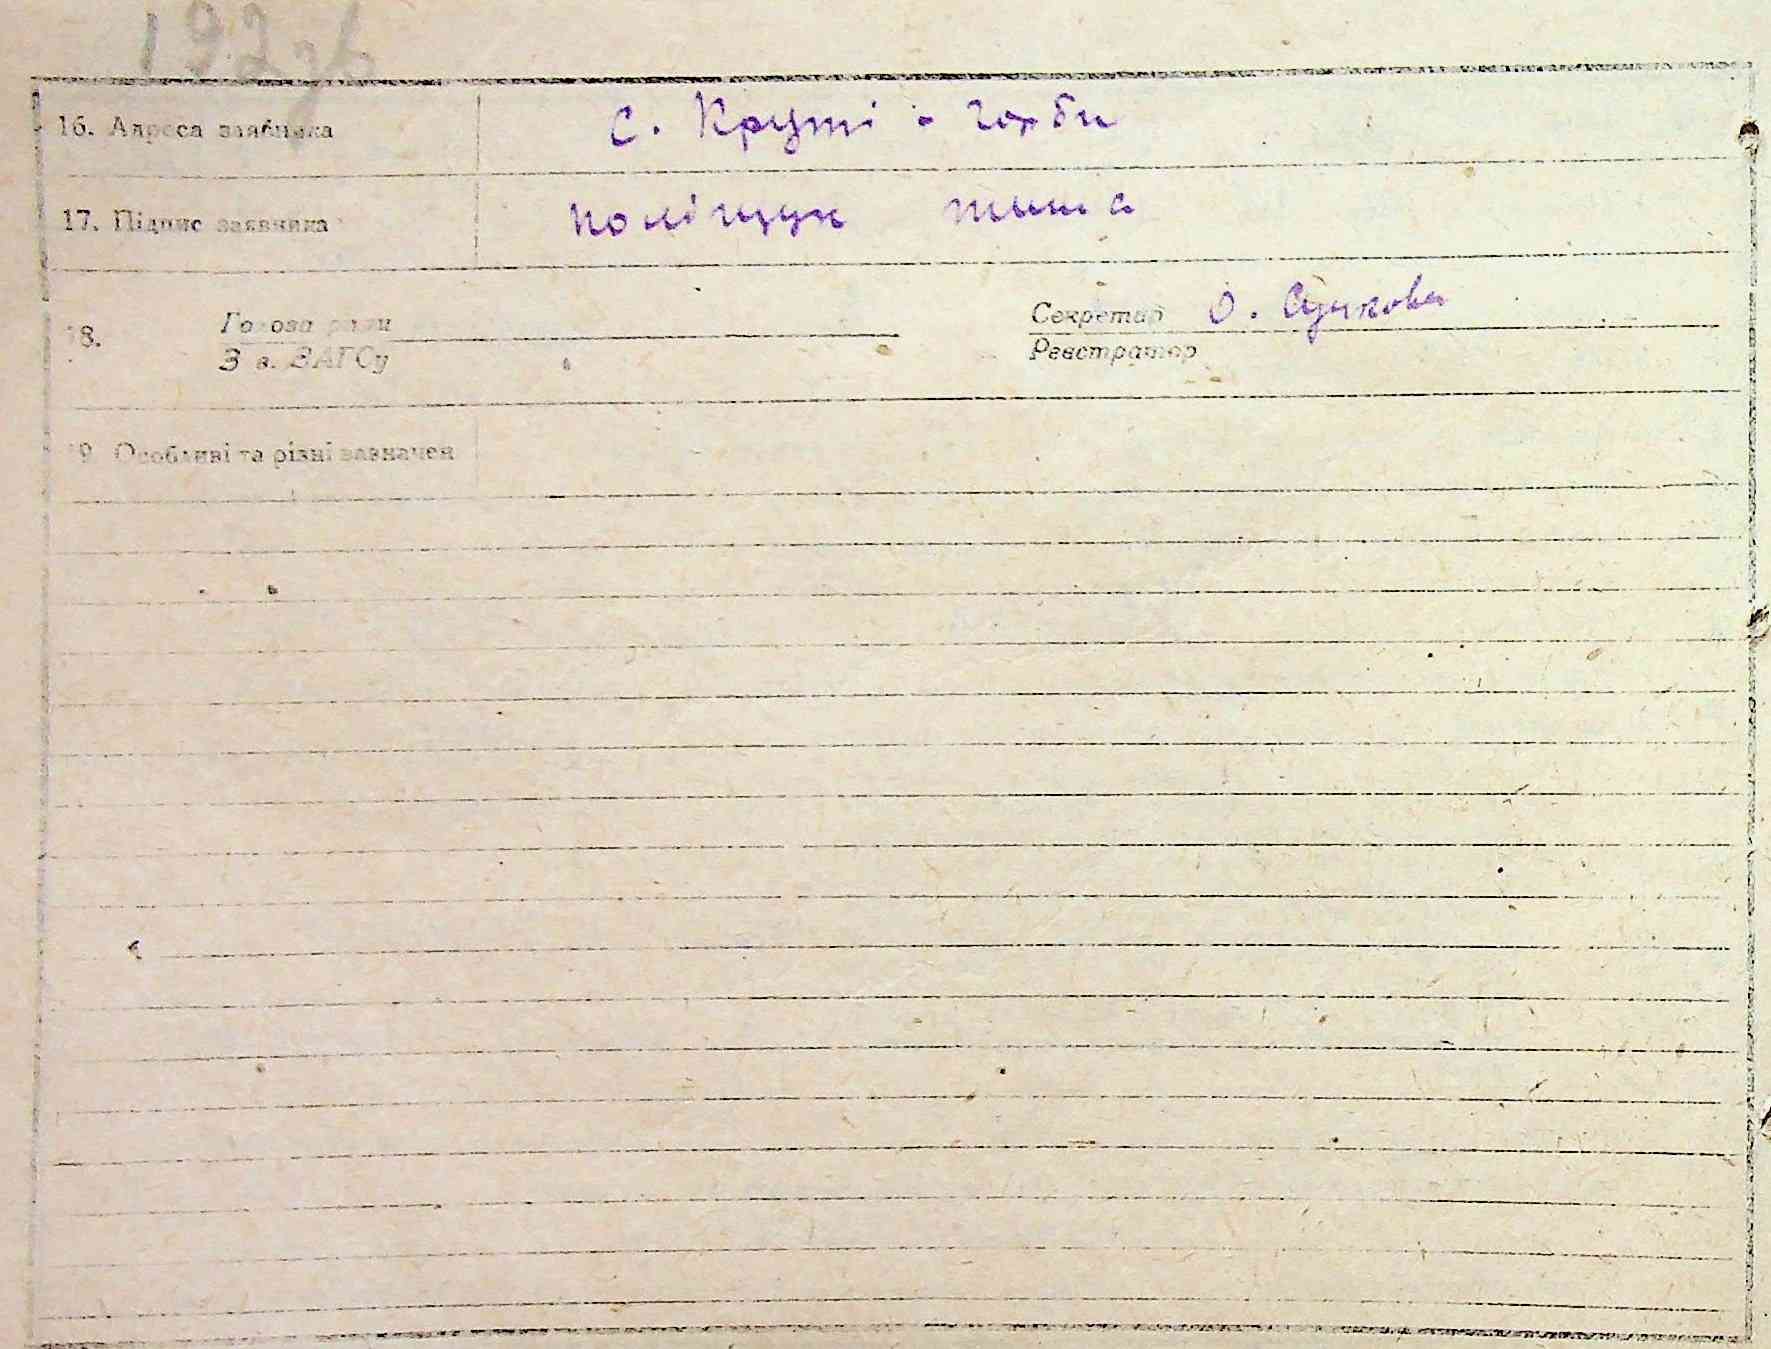 192зв
16. Адреса заявника с. Круті - горби
17. Підпис заявника поліщук тиша
18. Голова ради Секретар О. Сучкова
З в. ЗАГСу Реєстратор
19 Особливі та різні зазначен